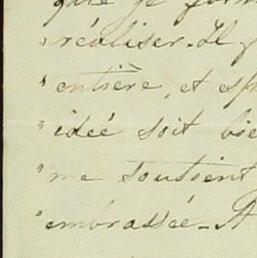 que je for
" réaliser. Il
" entière, et esp
" ideé soit bie
" me soutient
" embrassée - A